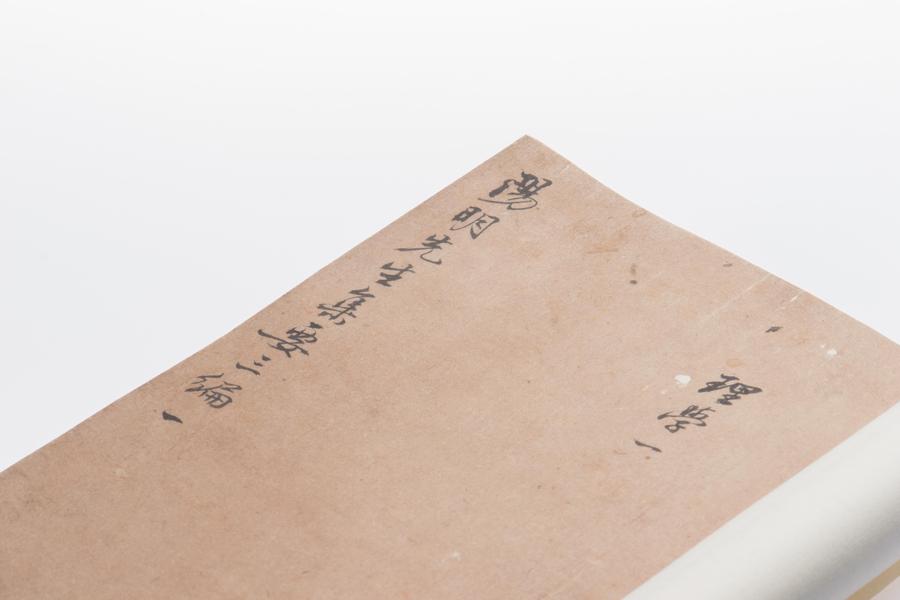 理學一
陽明先生集要三編一